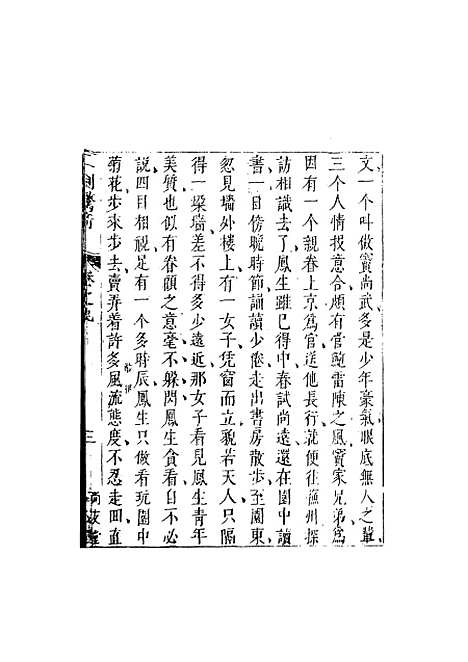 文一个叫做竇尚武多是少年豪氣眼底無人之輩
三个人情投意合頗有管鮑雷陳之風竇家兄弟爲
因有一个親眷上京爲官送他長行就便往蘇州探
訪相識去了鳳生雖已得中春試尚遠還在園中讀
書一日傍晚時節誦讀少倦走出書房散步至園東
忽見墻外樓上有一女子凭窗而立貌若天人只隔
得一垛墻差不得多少遠近那女子看見鳳生青年
美質也似有眷顧之意毫不躲閃鳳生貪看自不必
說四目相視足有一个多時辰鳳生只做看玩園中
菊花步來步去賣弄着許多風流態度不忍走回直
刻驚奇
卷之九
三
尚友堂